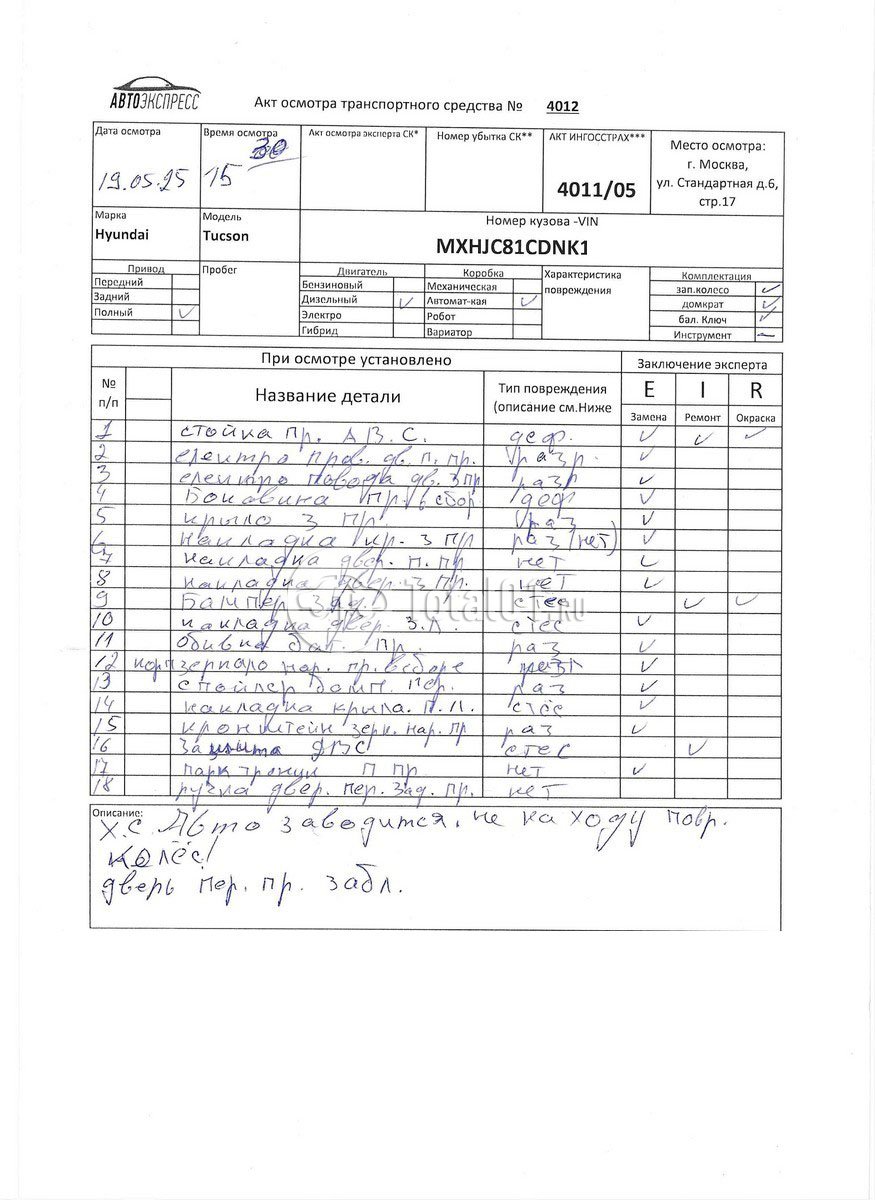 АВТОЭКСПРЕСС
Акт осмотра транспортного средства № 4012
Дата осмотра
19.05.25
Время осмотра
15 30
Акт осмотра эксперта СК*
Номер убытка СК**
АКТ ИНГОССТРАХ***
4011/05
Место осмотра:
г. Москва,
ул. Стандартная д.6,
стр.17
Марка
Hyundai
Модель
Tucson
Номер кузова -VIN
MXHJC81CDNK1
Привод
Передний
Задний
Полный ✓
Пробег
Двигатель
Бензиновый
Дизельный ✓
Электро
Гибрид
Коробка
Механическая
Автомат-кая ✓
Робот
Вариатор
Характеристика
повреждения
Комплектация
зап.колесо ✓
домкрат ✓
бал. Ключ ✓
Инструмент –
При осмотре установлено
Заключение эксперта
№ п/п
Название детали
Тип повреждения
(описание см.Ниже
E I R
Замена Ремонт Окраска
1 стойка пр. А В. С. деф. ✓ ✓ ✓
2 електро пров. дв. п. пр. разр. ✓
3 електро дв. з пр разр ✓
4 Боковина пр. в сбор деф ✓
5 крыло з пр раз ✓
6 накладка кр. з пр раз (нет) ✓
7 накладка двер. п. пр нет ✓
8 накладка двер. з пр. нет ✓
9 Бампер зад. стес ✓ ✓
10 накладка двер. з.л. стес ✓
11 обивка баг. пр. раз ✓
12 корп зеркало нар. пр. всборе разр ✓
13 спойлер бамп. пер. раз ✓
14 накладка крыла. п.л. стес ✓
15 кронштейн зерк. нар. пр раз ✓
16 Защита ДВС стес ✓
17 парктроник п пр нет ✓
18 ручка двер. пер. зад. пр. нет
Описание:
Х.С. Авто заводится, не на ходу повр.
колёс!
дверь пер. пр. забл.
Total01.ru